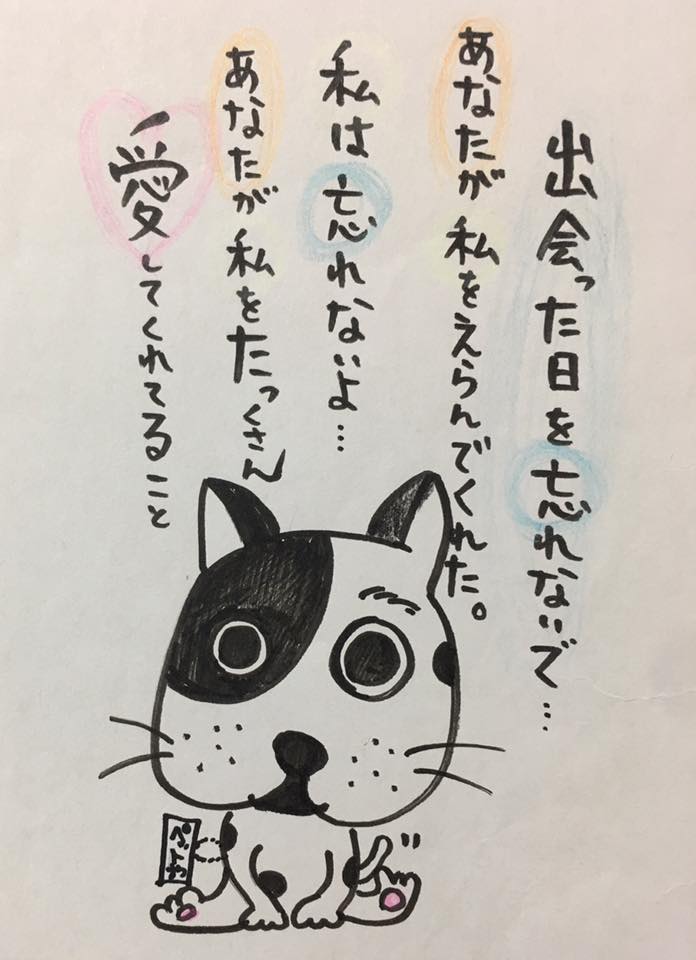 出会った日を忘れないで…
あなたが私をえらんでくれた。
私は忘れないよ…
あなたが私をたっくさん
愛してくれてること